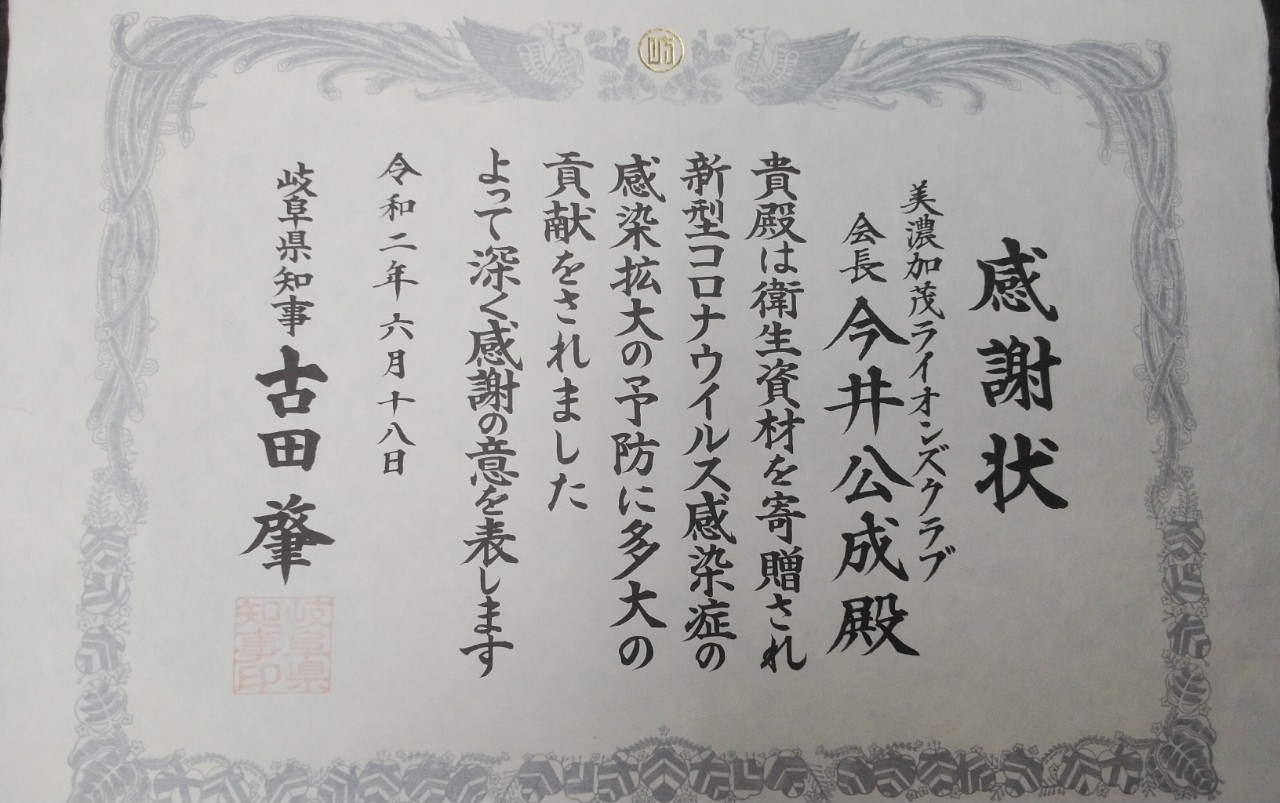 岐
感謝状
美濃加茂ライオンズクラブ
会長 今井公成殿
貴殿は衛生資材を寄贈され
新型コロナウイルス感染症の
感染拡大の予防に多大の
貢献をされました
よって深く感謝の意を表します
令和二年六月十八日
岐阜県知事 古田 肇
岐阜県
知事印